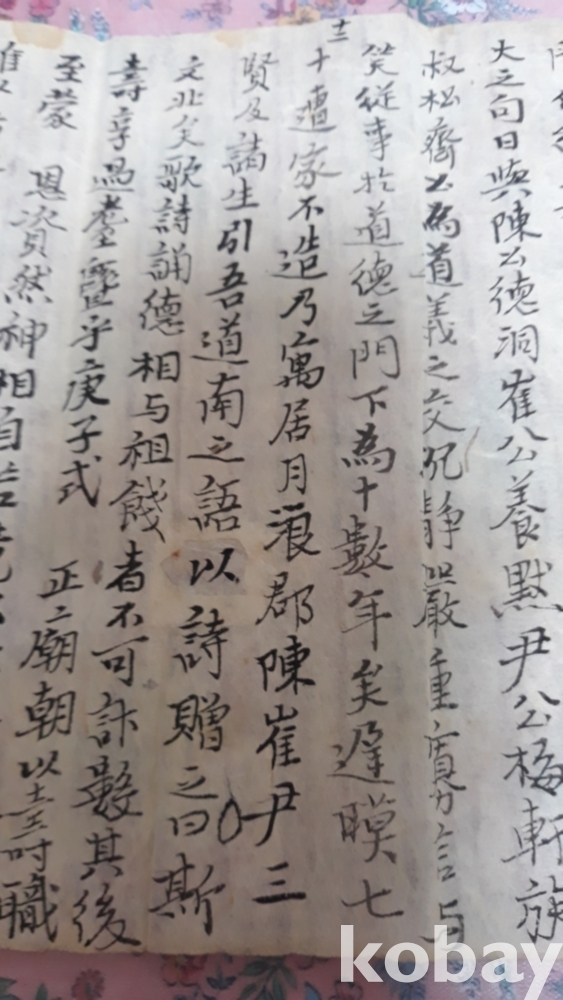 大之句日與陳公德洞崔公養默尹公梅軒族
叔松齋公為道義之交況靜嚴重寡言与
從事於道德之門下為十數年矣遲暯七
十遭家不造乃寓居月浪郡陳崔尹三
賢及諸生引吾道南之語以詩贈之曰斯
文北矣歌詩誦德相与祖餞者不可計數其後
壽享過耋乎庚子式 正廟朝以壽職
至蒙 恩資然神相自
kobay